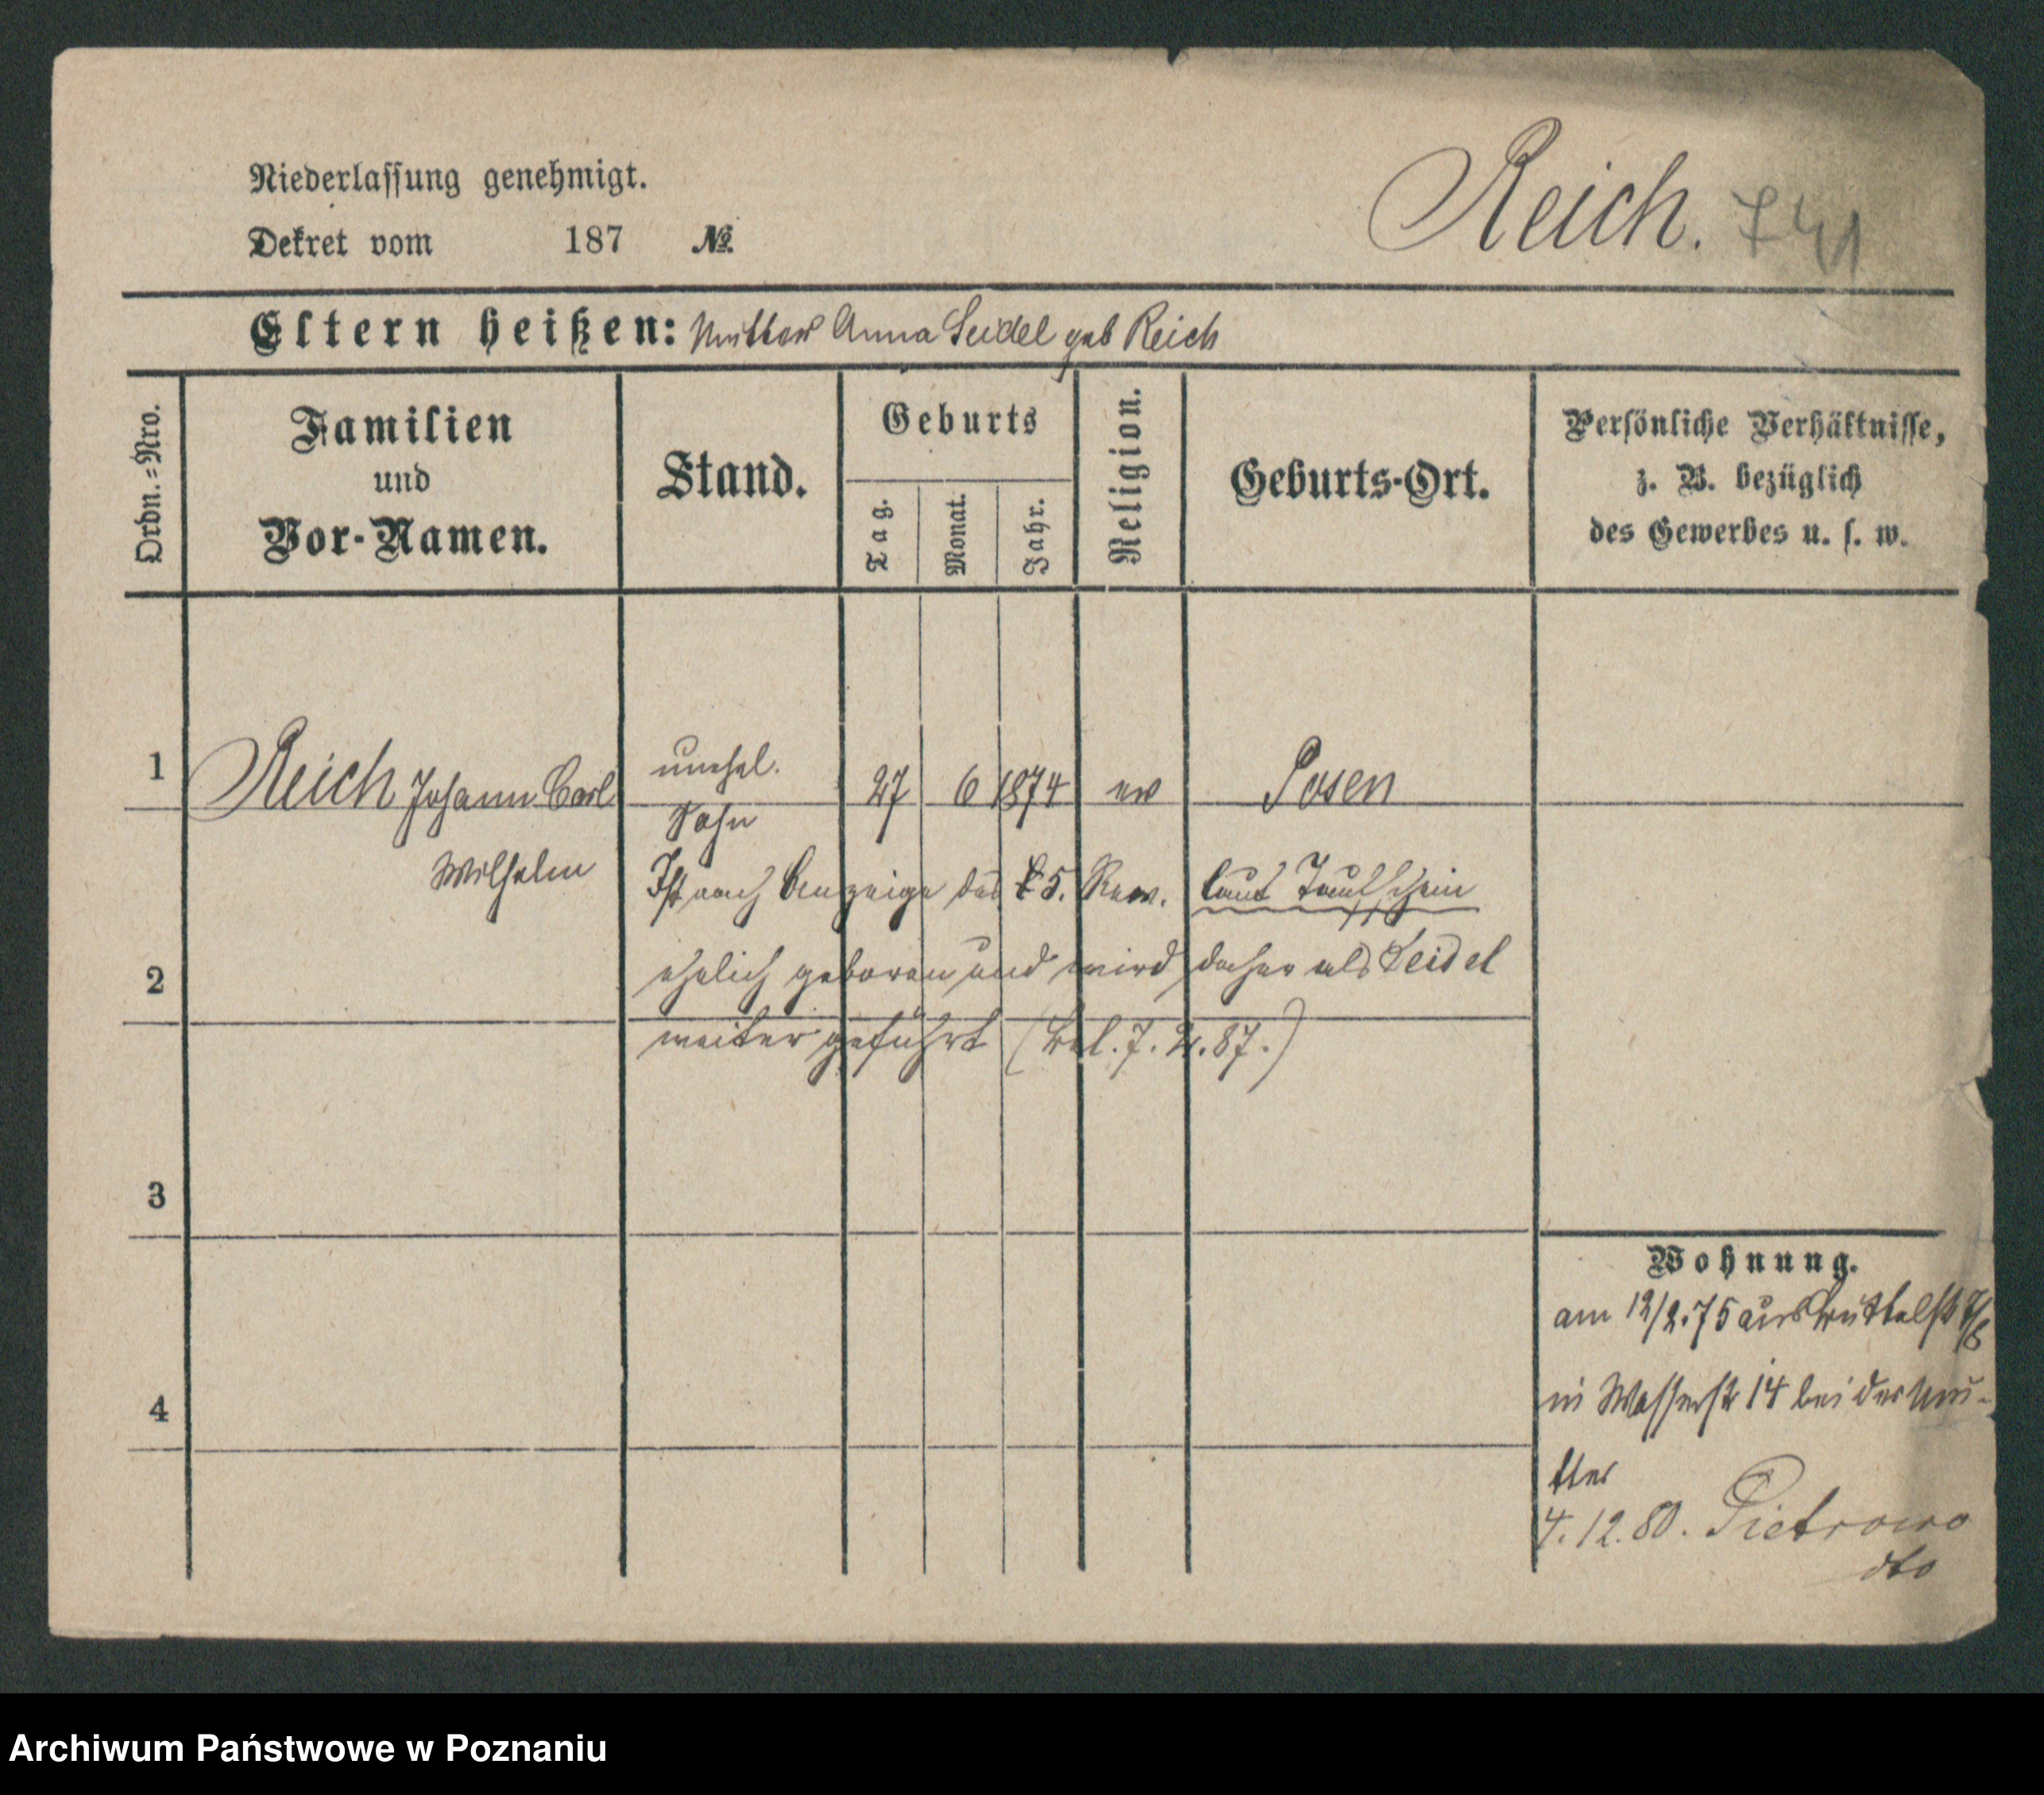 Niederlassung genehmigt.
Dekret vom 187 №
Reich. 741
Eltern heißen: Mutter Anna Seidel geb Reich
Ordn.=Nro.
Familien
und
Vor-Namen.
Stand.
Geburts
Tag.
Monat.
Jahr.
Religion.
Geburts-Ort.
Persönliche Verhältnisse,
z. B. bezüglich
des Gewerbes u. s. w.
1 Reich Johann Carl unehel. 27 6 1874 ev Posen
Sohn
Wilhelm
Ist nach Anzeige des 5. Rev. laut Taufschein
2
ehelich geboren und wird daher als Seidel
weiter geführt ( 7. 2. 87.)
3
4
Wohnung.
am 12/2.75 aus
in Wasserstr 14 bei der Mu-
tter
4.12.80. Pietrowo
dto
Archiwum Państwowe w Poznaniu